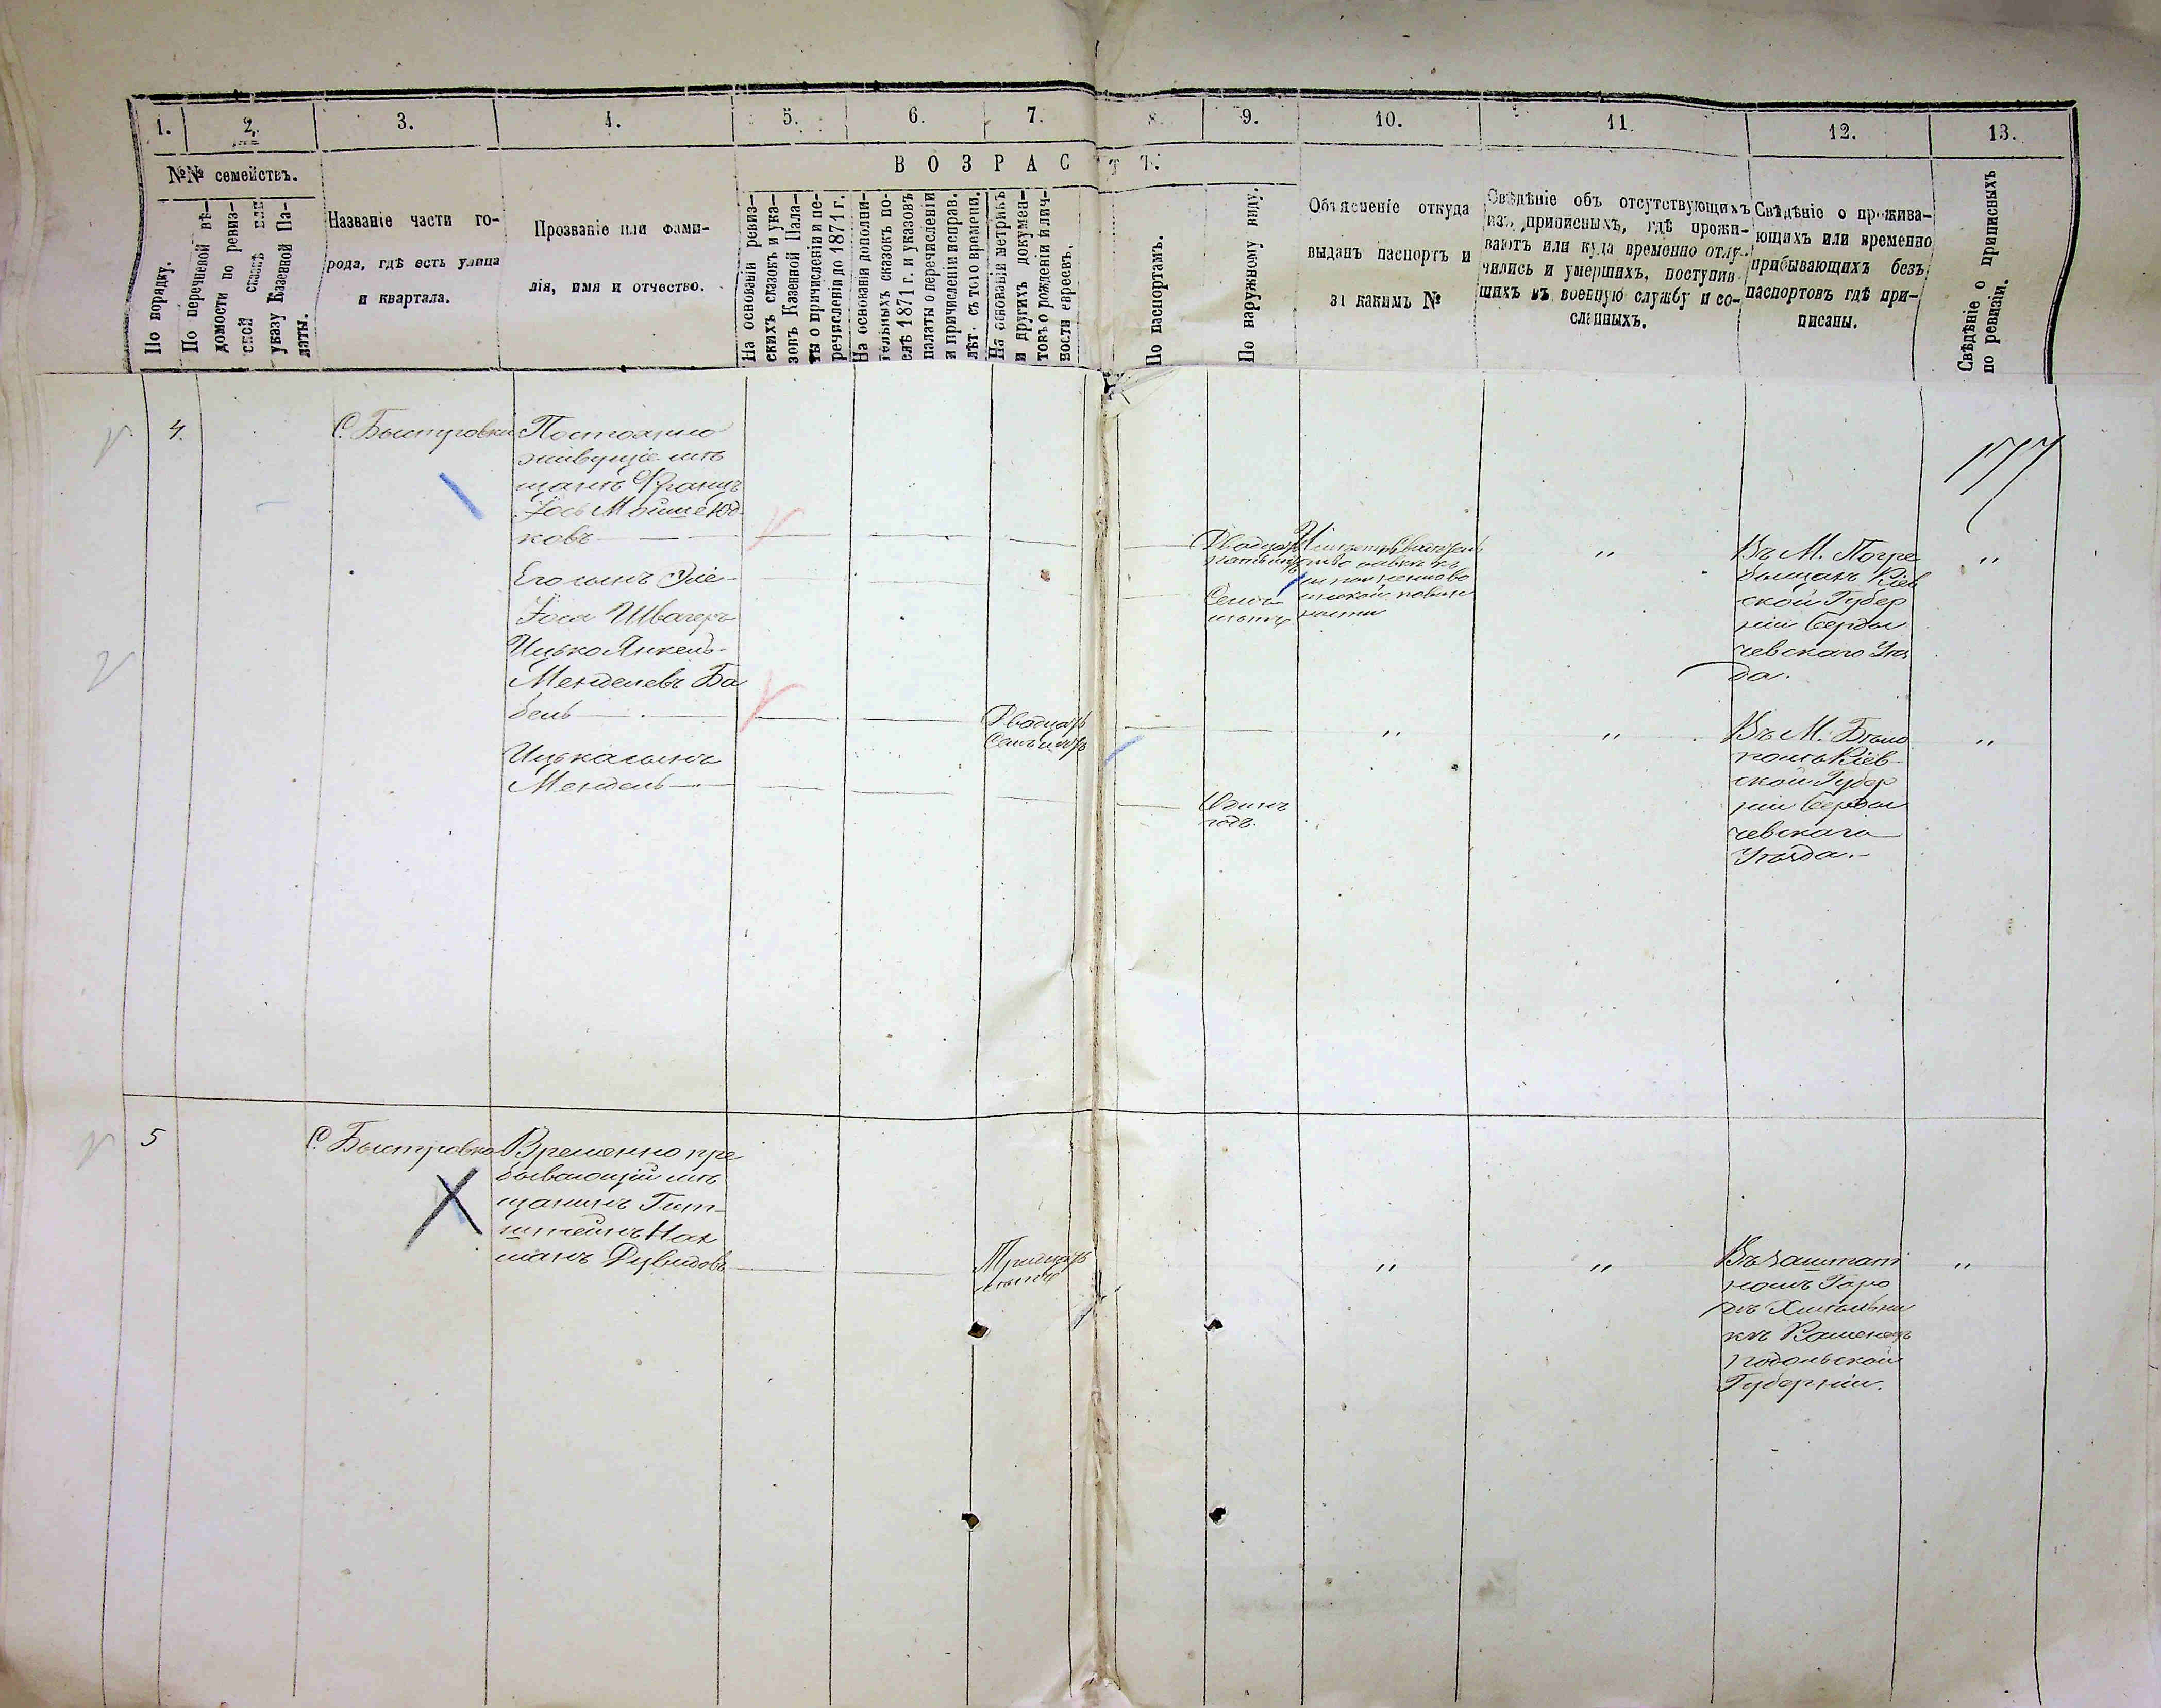 1. 2. 3. 4. 5. 6. 7. 8. 9. 10. 11. 12. 13.
№№ семействъ.
ВОЗРАСТЪ.
По порядку.
По перечневой вѣ-
домости по ревиз-
ской сказкѣ или
указу Казенной Па-
латы.
Названіе части го-
рода, гдѣ есть улица
и квартала.
Прозваніе или фами-
лія, имя и отчество.
На основаніи ревиз-
скихъ сказокъ и ука-
зовъ Казенной Пала-
ты о причисленіи и пе-
речисленіи до 1871 г.
На основаніи дополни-
тельныхъ сказокъ по-
слѣ 1871 г. и указовъ
палаты о перечисленіи
и причисленіи исправ.
лѣт. съ того времени.
На основаніи метрикъ
и другихъ докумен-
товъ о рожденіи и лич-
ности евреевъ.
По паспортамъ.
По наружному виду.
Объясненіе откуда
выданъ паспортъ и
за какимъ №
Свѣдѣніе объ отсутствующихъ
изъ приписныхъ, гдѣ прожи-
ваютъ или куда временно отлу-
чились и умершихъ, поступив-
шихъ въ военную службу и со-
сланныхъ.
Свѣдѣніе о прожива-
ющихъ или временно
прибывающихъ безъ
паспортовъ гдѣ при-
писаны.
Свѣдѣніе о приписныхъ
по ревизіи.
177
4.
С. Быстровка
Постоянно
живущіе мѣ
щане Франц
Іось Мойше Юд
ковъ
Его сынъ Эле
Іося Швагеръ
Ицько Янкель
Менделевъ Ба
бель
Ицька сынъ
Мендель
Двадцать
семь лѣтъ
Двадцать
пять лѣтъ
Семь
лѣтъ
Одинъ
годъ.
" "
Въ М. Погре
бищахъ Кіев
ской Губер
ніи Берди
чевскаго Уѣз
да.
"
" "
Въ М. Бѣло
полье Кіев
ской Губер
ніи Берди
чевскаго
Уѣзда.
"
5
С. Быстровка
Временно пре
бывающій мѣ
щанинъ Гит
штейнъ Нах
манъ Дувидовъ
Тридцать
лѣтъ
" "
Въ заштат
номъ Горо
дѣ Хмѣльни
кѣ Каменец
Подольской
Губерніи.
"